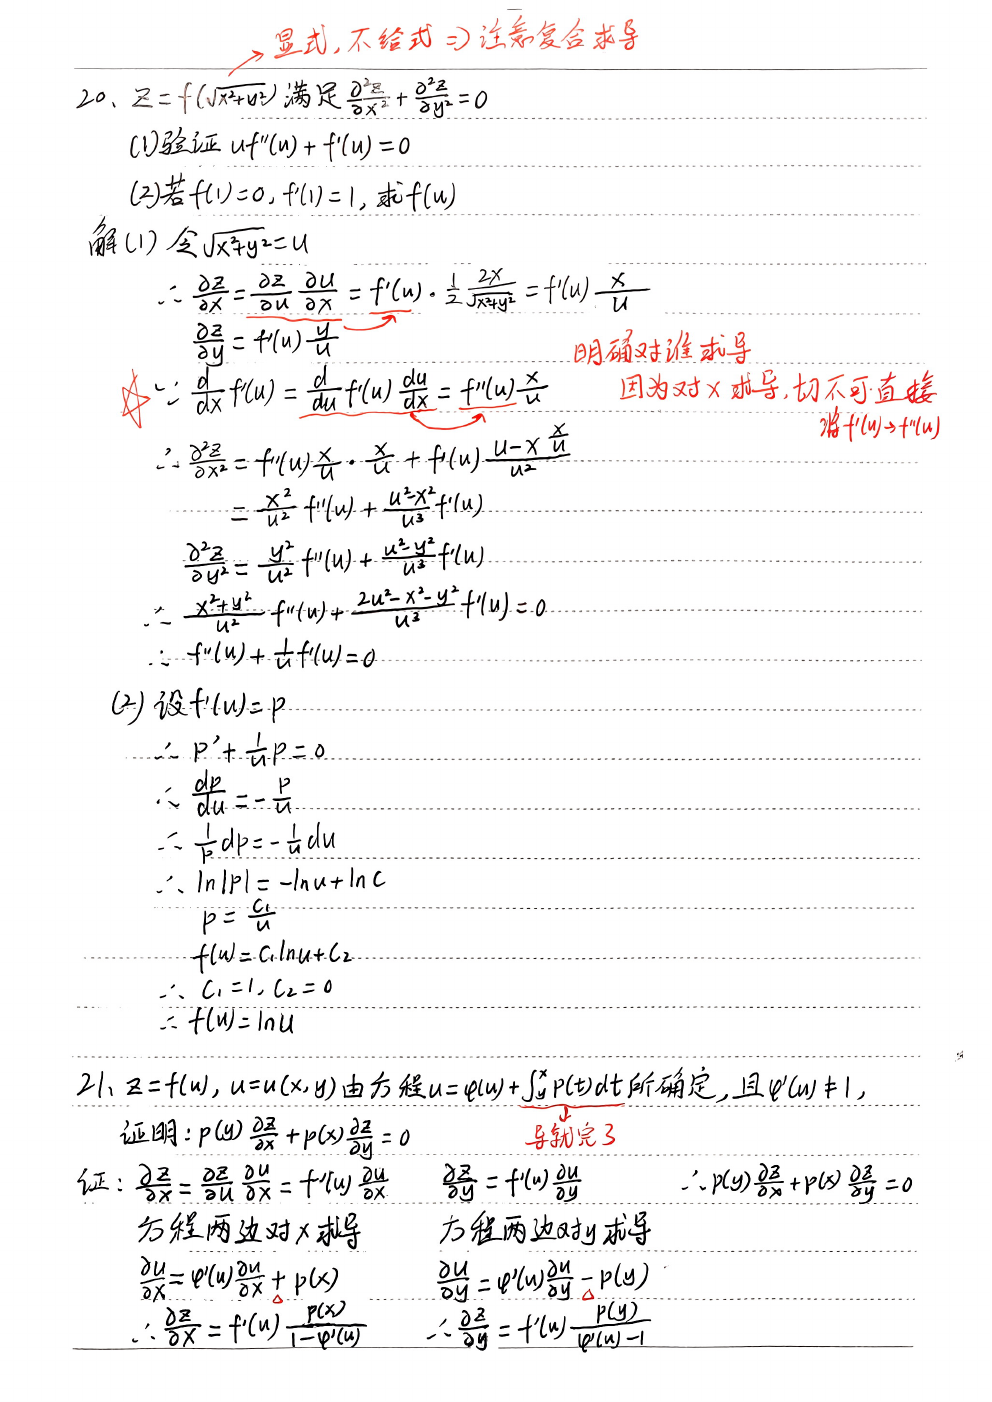 显式，不给式 => 注意复合求导
20、z=f(√(x²+y²)) 满足 ∂²z/∂x² + ∂²z/∂y² = 0
(1)验证 uf''(u)+f'(u)=0
(2)若f(1)=0, f'(1)=1, 求f(u)
解(1) 令√(x²+y²)=u
∴ ∂z/∂x = ∂z/∂u ∂u/∂x = f'(u)·1/2 2x/√(x²+y²) = f'(u) x/u
∂z/∂y = f'(u) y/u
明确对谁求导
☆ ∵ d/dx f'(u) = d/du f'(u) du/dx = f''(u) x/u
因为对x求导，切不可直接
将f'(u)→f''(u)
∴ ∂²z/∂x² = f''(u) x/u · x/u + f'(u) (u-x x/u)/u²
= x²/u² f''(u) + (u²-x²)/u³ f'(u)
∂²z/∂y² = y²/u² f''(u) + (u²-y²)/u³ f'(u)
∴ (x²+y²)/u² f''(u) + (2u²-x²-y²)/u³ f'(u) = 0
∴ f''(u) + 1/u f'(u) = 0
(2) 设f'(u)=p
∴ p' + 1/u p = 0
∴ dp/du = -p/u
∴ 1/p dp = -1/u du
∴ ln|p| = -lnu + lnC
p = C₁/u
f(u) = C₁lnu + C₂
∴ C₁=1, C₂=0
∴ f(u)=lnu
21、z=f(u), u=u(x,y)由方程u=φ(u)+∫_y^x p(t)dt所确定，且φ'(u)≠1,
证明: p(y) ∂z/∂x + p(x) ∂z/∂y = 0
导就完了
证: ∂z/∂x = ∂z/∂u ∂u/∂x = f'(u) ∂u/∂x ∂z/∂y = f'(u) ∂u/∂y ∴ p(y) ∂z/∂x + p(x) ∂z/∂y = 0
方程两边对x求导 方程两边对y求导
∂u/∂x = φ'(u) ∂u/∂x + p(x) ∂u/∂y = φ'(u) ∂u/∂y - p(y)
∴ ∂z/∂x = f'(u) p(x)/(1-φ'(u)) ∴ ∂z/∂y = f'(u) p(y)/(φ'(u)-1)